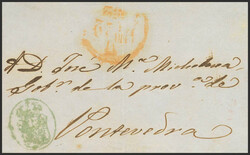 A D. José Mª Michelena
Gobr. de la provª. de
Pontevedra